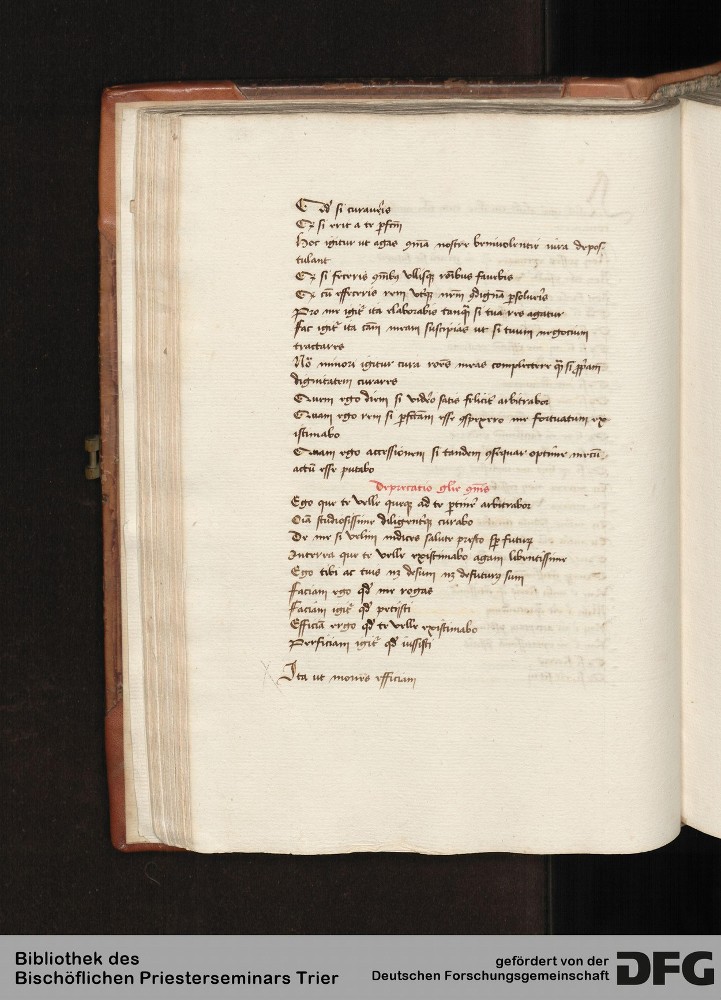 Qd si curaveris
Et si erit a te pfcm
Hoc igitur ut agas nostre benivolentie iura depos
tulant
Et si feceris ullisq favebis
Et cu effeceris rem psolveris
Pro me igit ita elaborabis tanq si tua res agatur
fac igit ita cam meam suscipias ut si tuum negocium
tractares
No minori igitur cura meas complectere q si
dignitatem curares
Quem ego diem si video satis felice arbitrabor
Quam ego rem si pfctam esse me fortunatum ex
istimabo
Quam ego accessionem si tandem optime mecu
actu esse putabo
Deprecatio
Ego que te velle queq ad te ptine arbitrabor
Oia studiosissime diligenterq curabo
De me si velim iudices salute presto sp futur
Interea que te velle existimabo agam libentissime
Ego tibi ac tuis desum defuturus sum
faciam ego qd me rogas
faciam igit qd petiisti
Efficia ergo qd te velle existimabo
Perficiam igit qd iussisti
Ita ut mones efficiam
Bibliothek des
Bischöflichen Priesterseminars Trier
gefördert von der
Deutschen Forschungsgemeinschaft
DFG